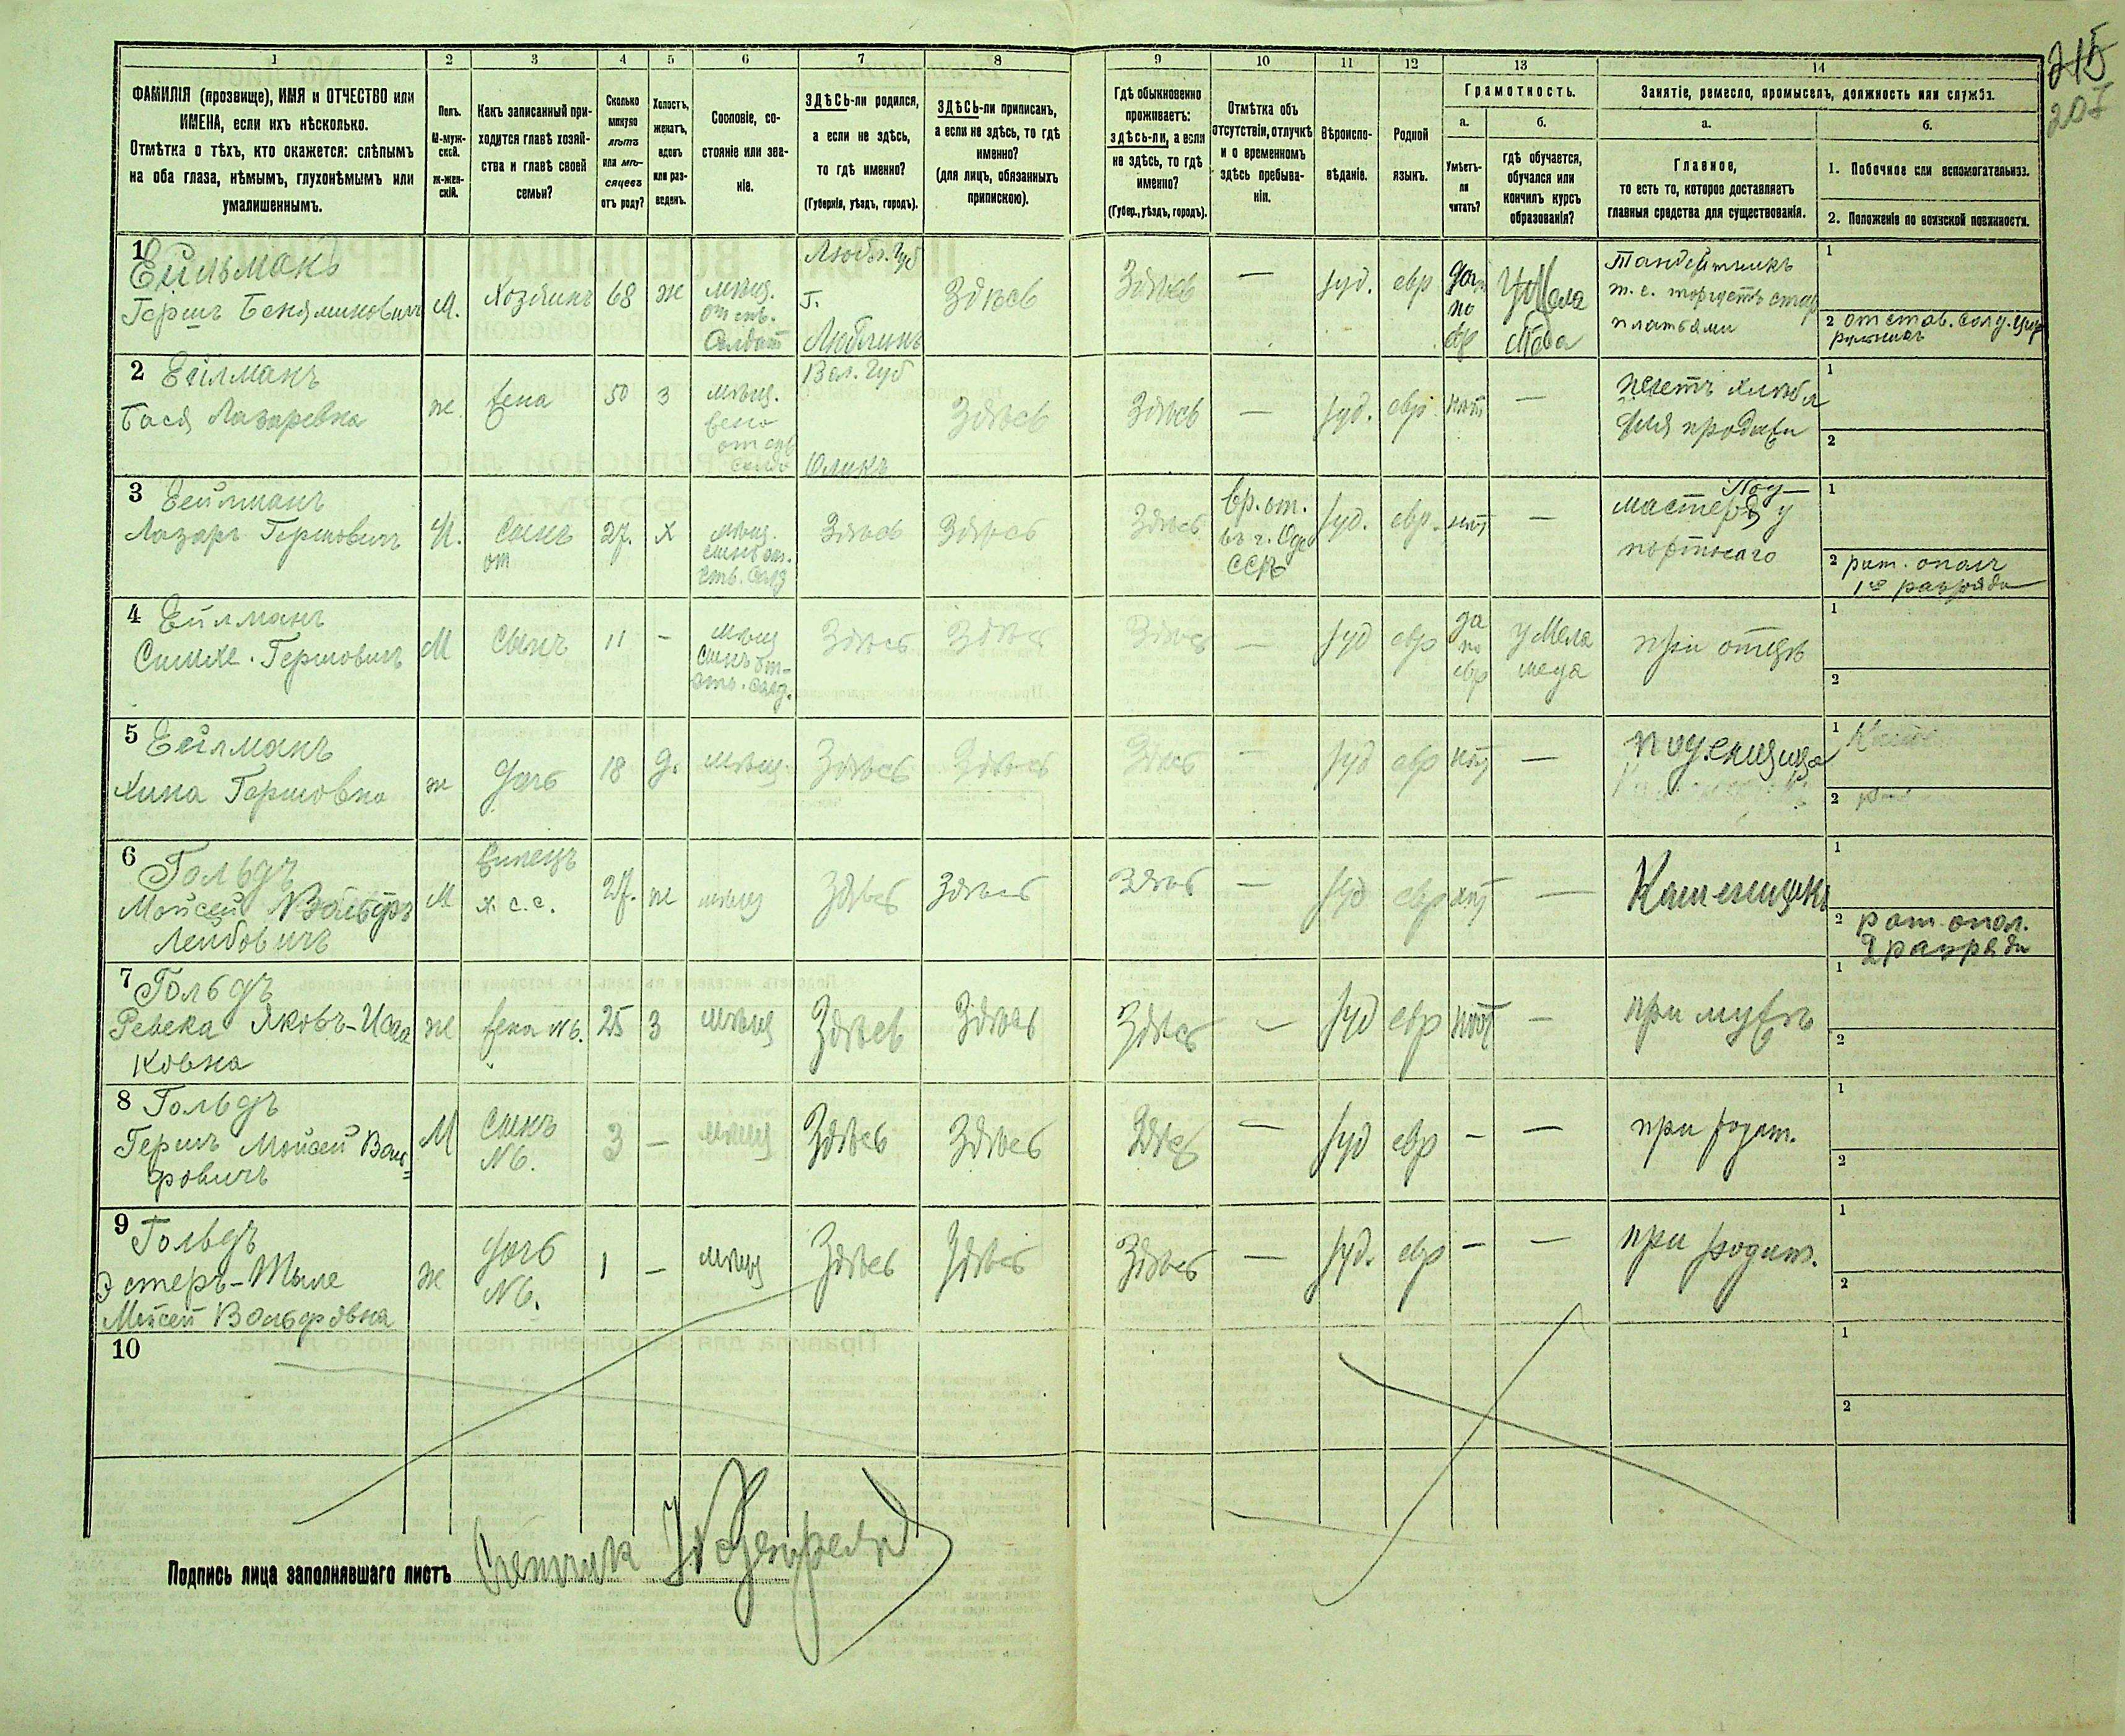 215
207
1 2 3 4 5 6 7 8 9 10 11 12 13 14
ФАМИЛІЯ (прозвище), ИМЯ и ОТЧЕСТВО или
ИМЕНА, если ихъ нѣсколько.
Отмѣтка о тѣхъ, кто окажется: слѣпымъ
на оба глаза, нѣмымъ, глухонѣмымъ или
умалишеннымъ.
Полъ.
М-муж-
ской.
Ж-жен-
скій.
Какъ записанный при-
ходится главѣ хозяй-
ства и главѣ своей
семьи?
Сколько
минуло
лѣтъ
или мѣ-
сяцевъ
отъ роду?
Холостъ,
женатъ,
вдовъ
или раз-
веденъ.
Сословіе, со-
стояніе или зва-
ніе.
ЗДѢСЬ-ли родился,
а если не здѣсь,
то гдѣ именно?
(Губернія, уѣздъ, городъ).
ЗДѢСЬ-ли приписанъ,
а если не здѣсь, то гдѣ
именно?
(для лицъ, обязанныхъ
припискою).
Гдѣ обыкновенно
проживаетъ:
здѣсь-ли, а если
не здѣсь, то гдѣ
именно?
(Губер., уѣздъ, городъ).
Отмѣтка объ
отсутствіи, отлучкѣ
и о временномъ
здѣсь пребыва-
ніи.
Вѣроиспо-
вѣданіе.
Родной
языкъ.
Грамотность.
а.
Умѣетъ-
ли
читать?
б.
гдѣ обучается,
обучался или
кончилъ курсъ
образованія?
Занятіе, ремесло, промыселъ, должность или служба.
а.
Главное,
то есть то, которое доставляетъ
главныя средства для существованія.
б.
1. Побочное или вспомогательное.
2. Положеніе по воинской повинности.
1 Ейльманъ
Гершъ Беняминовичъ
М.
Хозяинъ
68
ж
мѣщ.
отст.
Солдат
Любл. Губ
г.
Люблинъ
Здѣсь
Здѣсь
—
Iуд.
евр
да
по
евр
у Мела
меда
Тандитникъ
т.е. торгуетъ стар
платьями
1
2 отстав. солд.
2 Ейлманъ
Бася Лазаревна
ж.
жена
50
з
мѣщ.
жена
отст
солд
Вол. Губ
Олыкъ
Здѣсь
Здѣсь
—
Iуд.
евр.
нѣт
—
печетъ хлѣбъ
для продажи
1
2
3 Ейлманъ
Лазаръ Гершовичъ
М.
Сынъ
27.
х
мѣщ.
сынъ от.
ств. Солд
Здѣсь
Здѣсь
Здѣсь
вр. от.
въ г. Оде
ссѣ
Iуд.
евр.
нѣт
—
Под
мастерья у
портного
1
2 рат. опол
1го разряда
4 Ейлманъ
Симхе Гершовичъ
М
Сынъ
11
-
мѣщ
Сынъ от-
ств. Солд.
Здѣсь
Здѣсь
Здѣсь
—
Iуд
евр
да
по
евр
у Мела
меда
при отцѣ
1
2
5 Ейлманъ
Хина Гершовна
ж
дочь
18
д.
мѣщ.
Здѣсь
Здѣсь
Здѣсь
—
Iуд
евр
нѣт
—
поденщица
1
2
6 Гольдъ
Мойсей Вольфъ
Лейбовичъ
М
Жилецъ
х. с. с.
27.
ж
мѣщ
Здѣсь
Здѣсь
Здѣсь
—
Iуд
евр
нѣт
—
Каменщикъ
1
2 рат. опол.
2 разряда
7 Гольдъ
Ревека Яковъ-Иса
ковна
ж
жена №6.
25
З
мѣщ
Здѣсь
Здѣсь
Здѣсь
—
Iуд
евр
нѣт
—
при мужѣ
1
2
8 Гольдъ
Гершъ Мойсей Воль-
фовичъ
М
Сынъ
№6.
3
—
мѣщ
Здѣсь
Здѣсь
Здѣсь
—
Iуд
евр
-
—
при родит.
1
2
9 Гольдъ
Эстеръ-Мыле
Мойсей Вольфовна
ж
дочь
№6.
1
—
мѣщ
Здѣсь
Здѣсь
Здѣсь
—
Iуд.
евр
-
—
при родит.
1
2
10
1
2
Подпись лица заполнявшаго листъ Счетчик